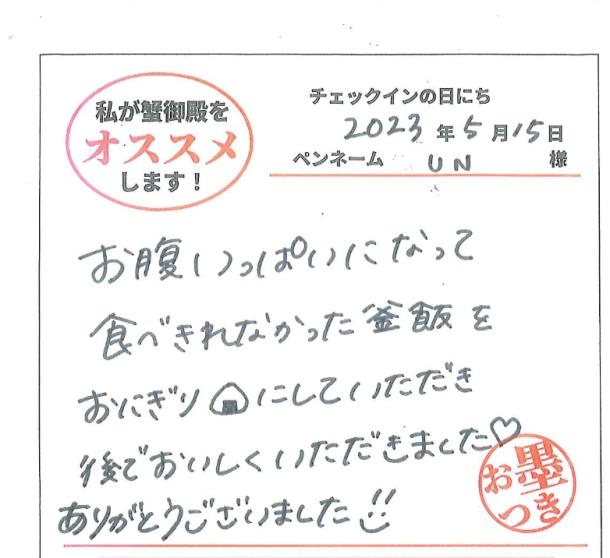 私が蟹御殿を
オススメ
します！
チェックインの日にち
2023年5月15日
ペンネーム UN 様
お腹いっぱいになって
食べきれなかった釜飯を
おにぎり🍙にしていただき
後でおいしくいただきました♡
ありがとうございました!!
お墨つき